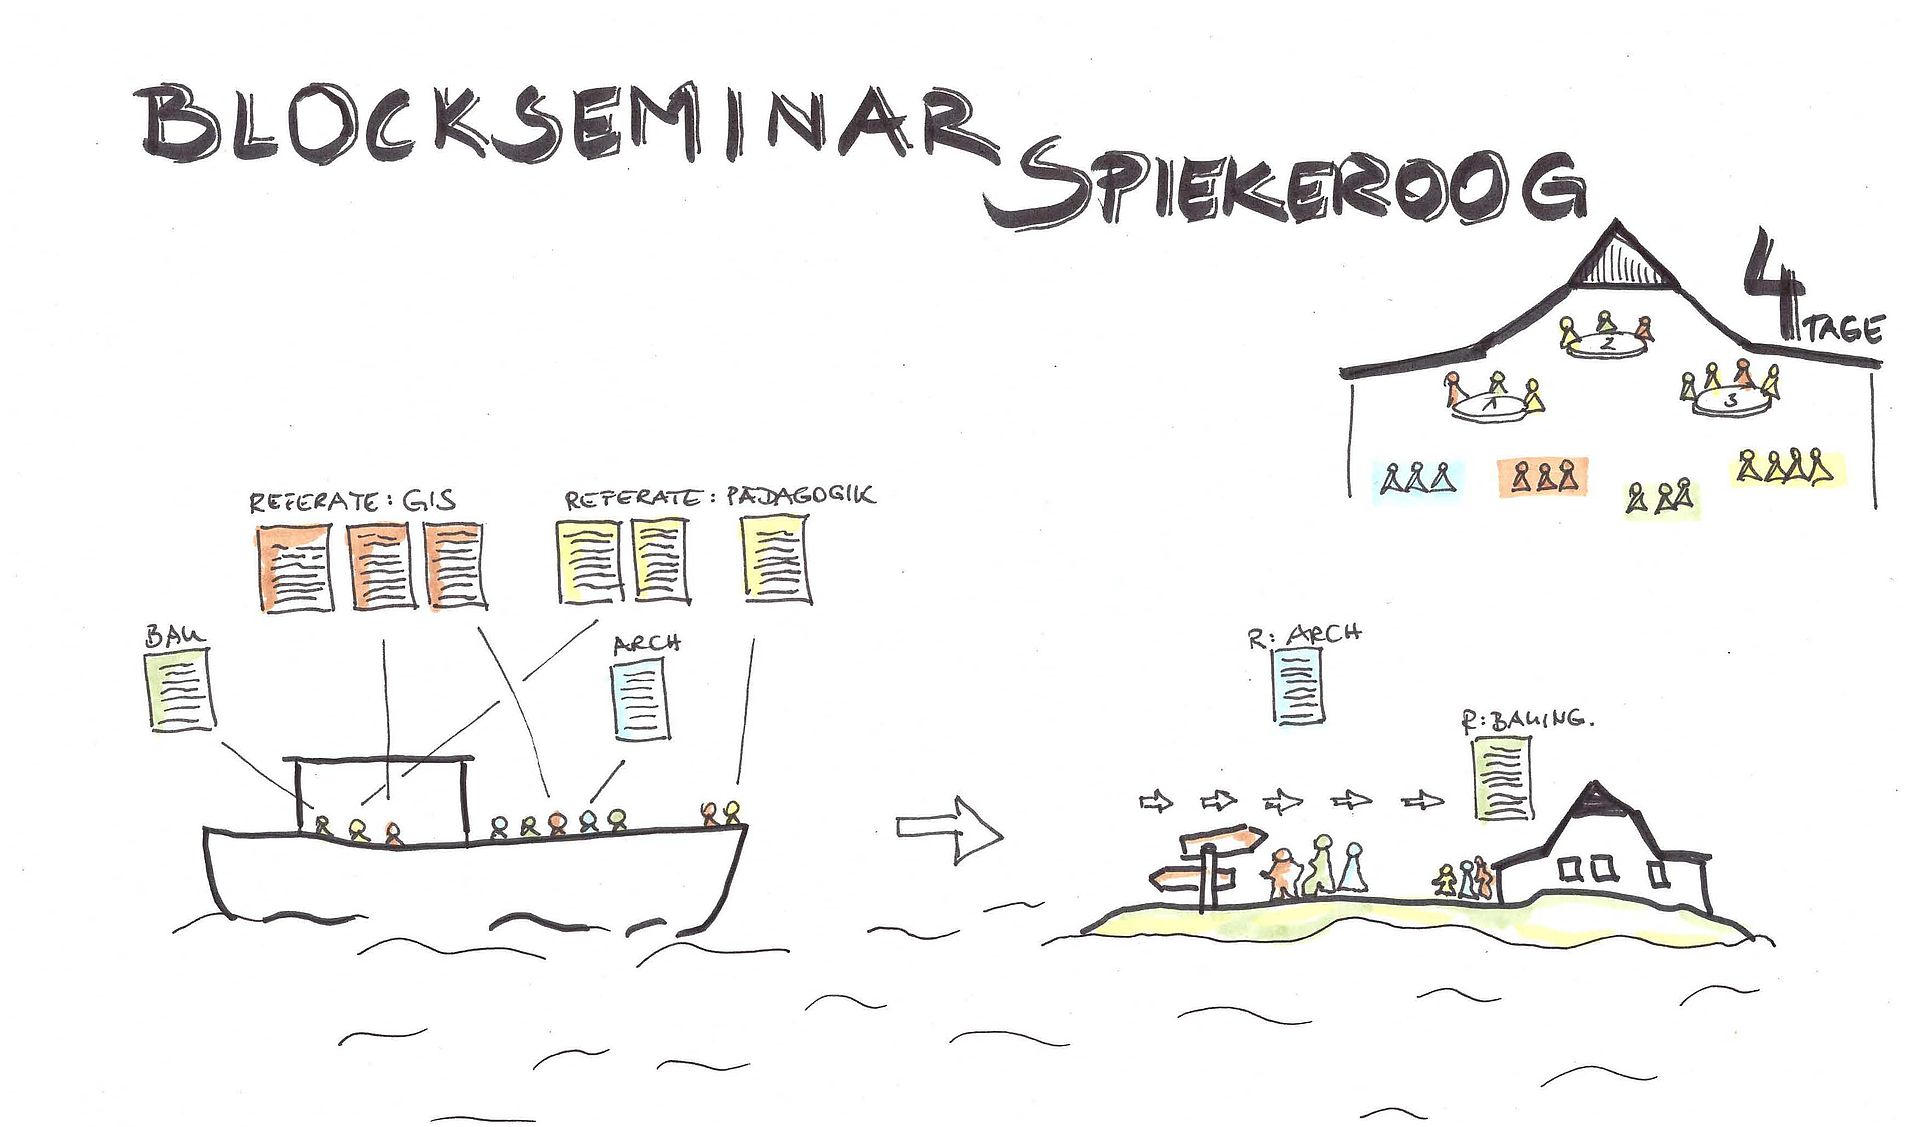 BLOCKSEMINAR
SPIEKEROOG
4 TAGE
2
1
3
REFERATE: GIS
REFERATE: PÄDAGOGIK
BAU
ARCH
R: ARCH
R: BAUING.